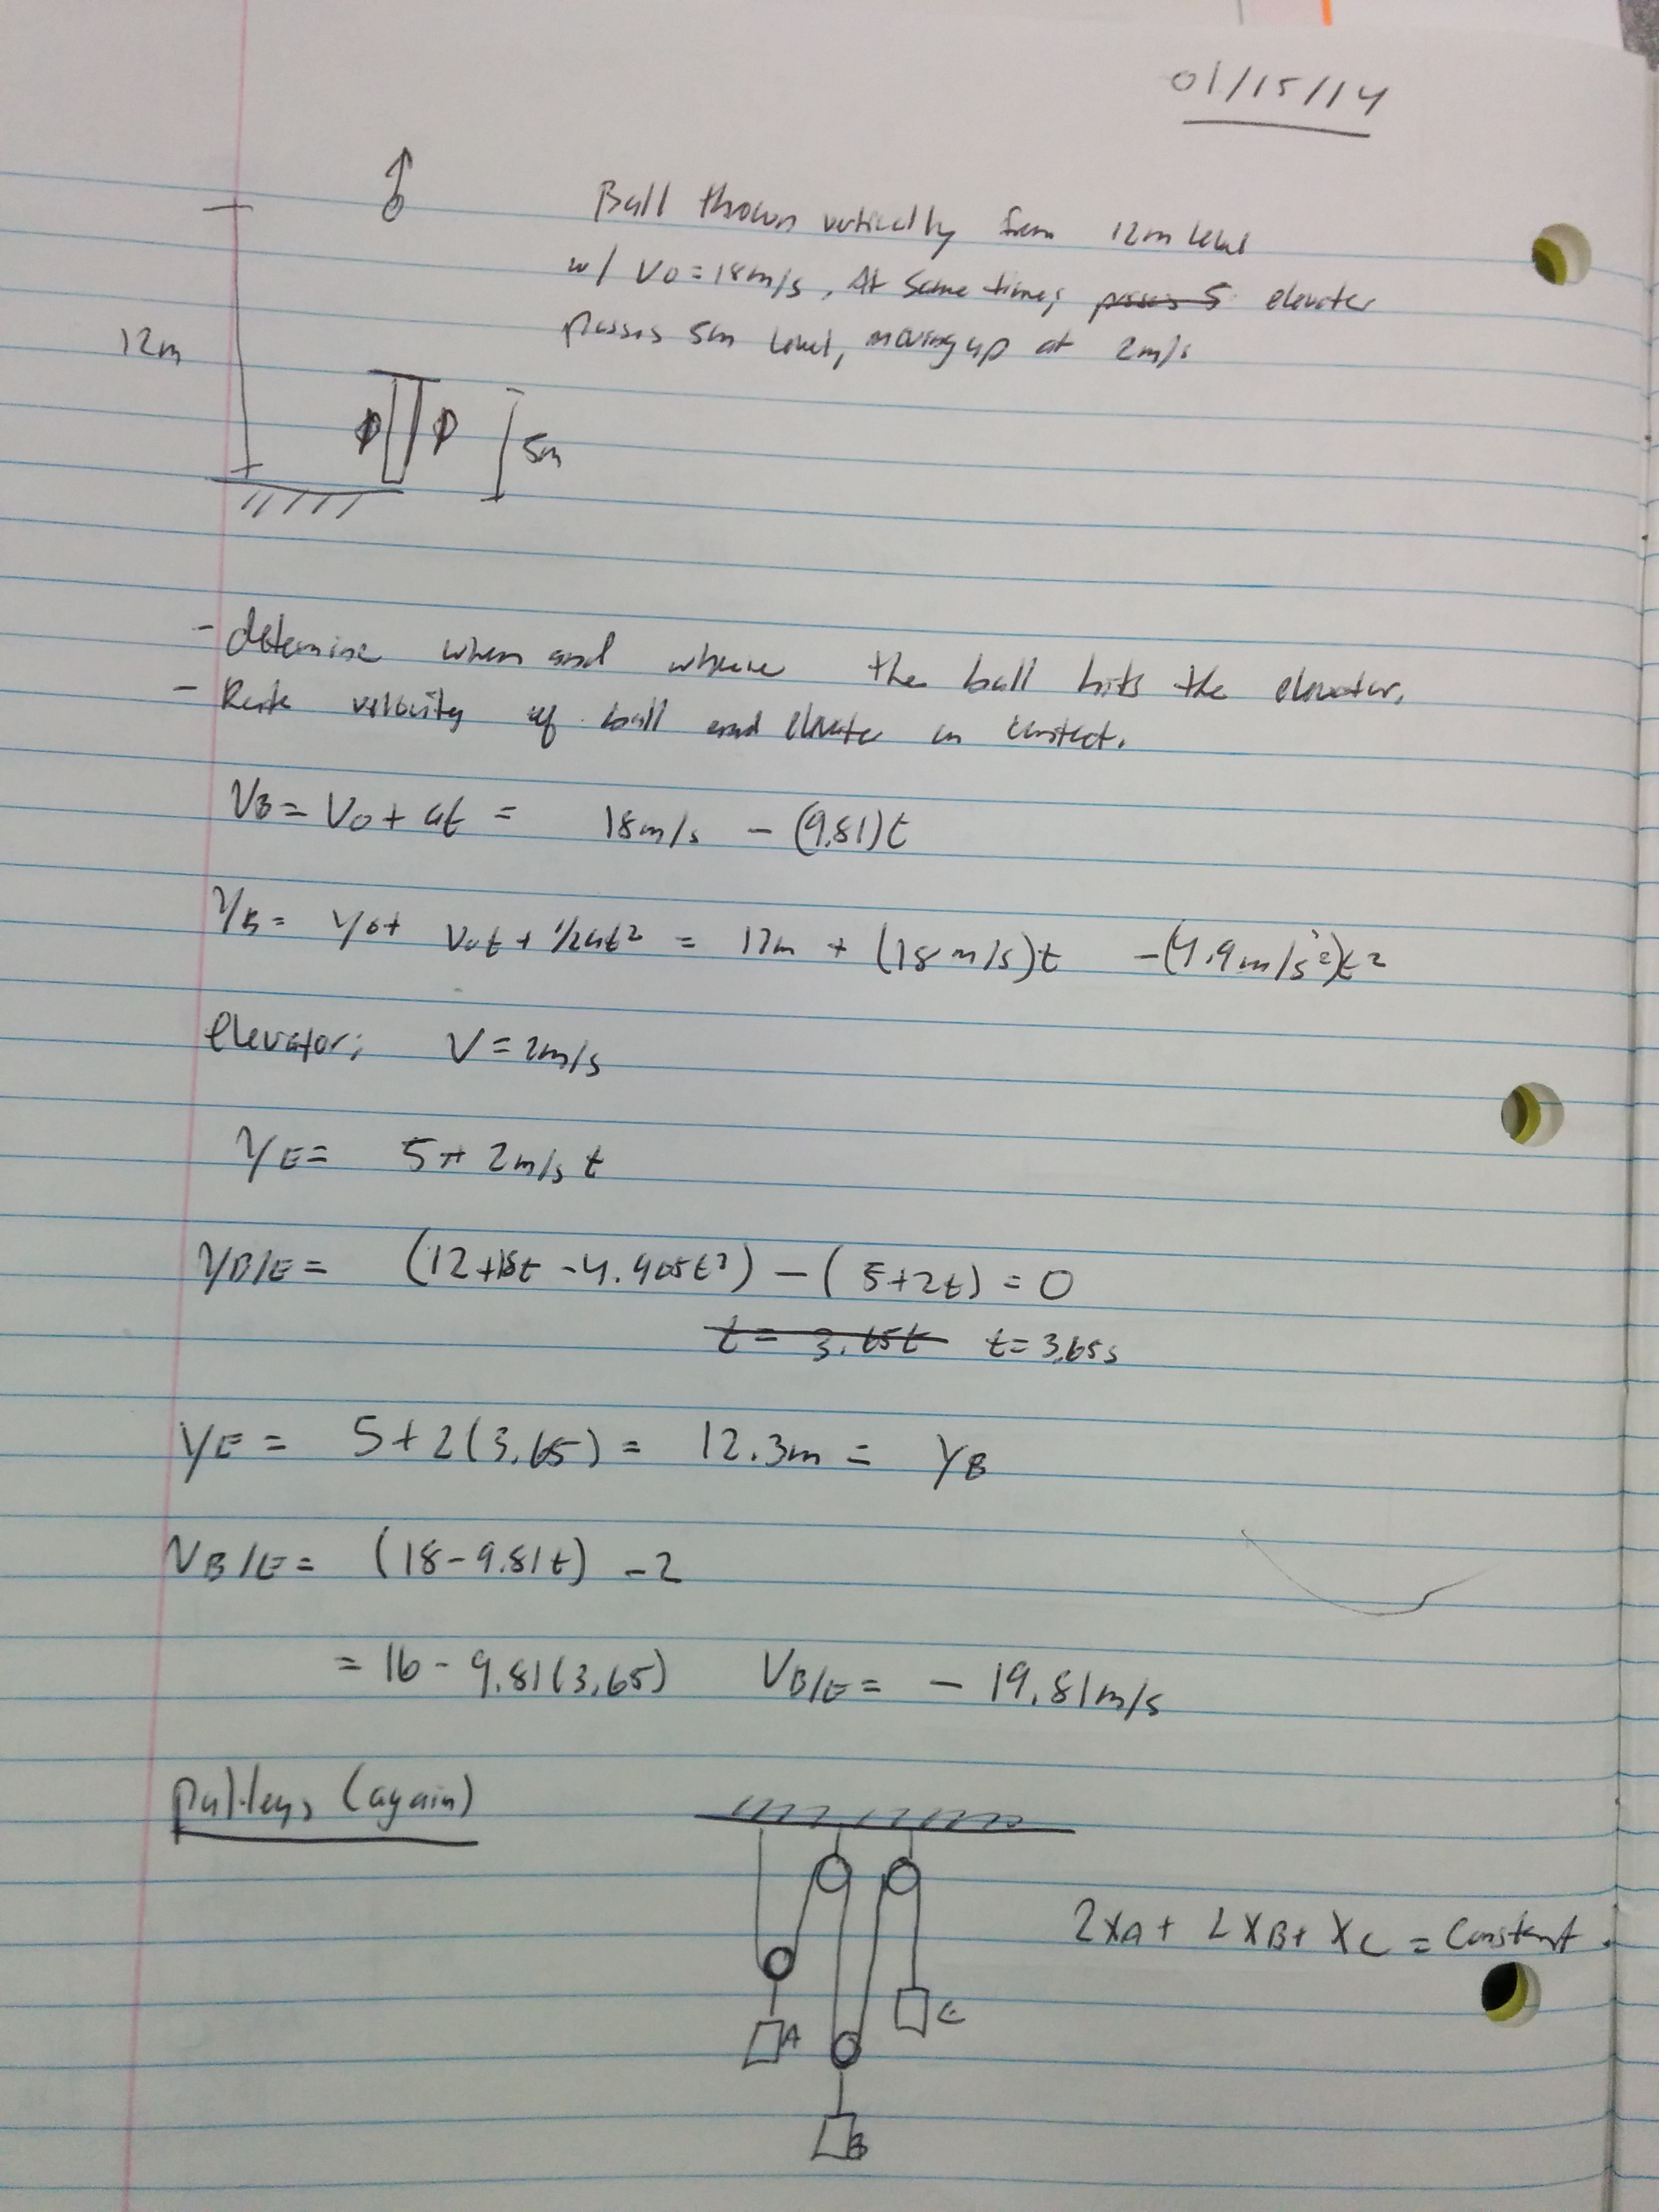 01/15/14
Ball thrown vertically from 12m level
w/ Vo = 18m/s, At same time, passes 5 elevator
passes 5m level, moving up at 2m/s
12m
5m
- determine when and where the ball hits the elevator.
- velocity of ball and elevator in contact.
VB = Vo + at = 18m/s - (9.81)t
YB = Yo + Vot + 1/2at² = 12m + (18m/s)t - (4.9m/s²)t²
elevator; V = 2m/s
YE = 5 + 2m/s t
YB/E = (12+18t - 4.905t²) - (5+2t) = 0
t = 3.65t t = 3.65s
YE = 5 + 2(3.65) = 12.3m = YB
VB/E = (18 - 9.81t) - 2
= 16 - 9.81(3.65) VB/E = - 19.81m/s
pulleys (again)
2XA + 2XB + XC = Constant.
A
C
B